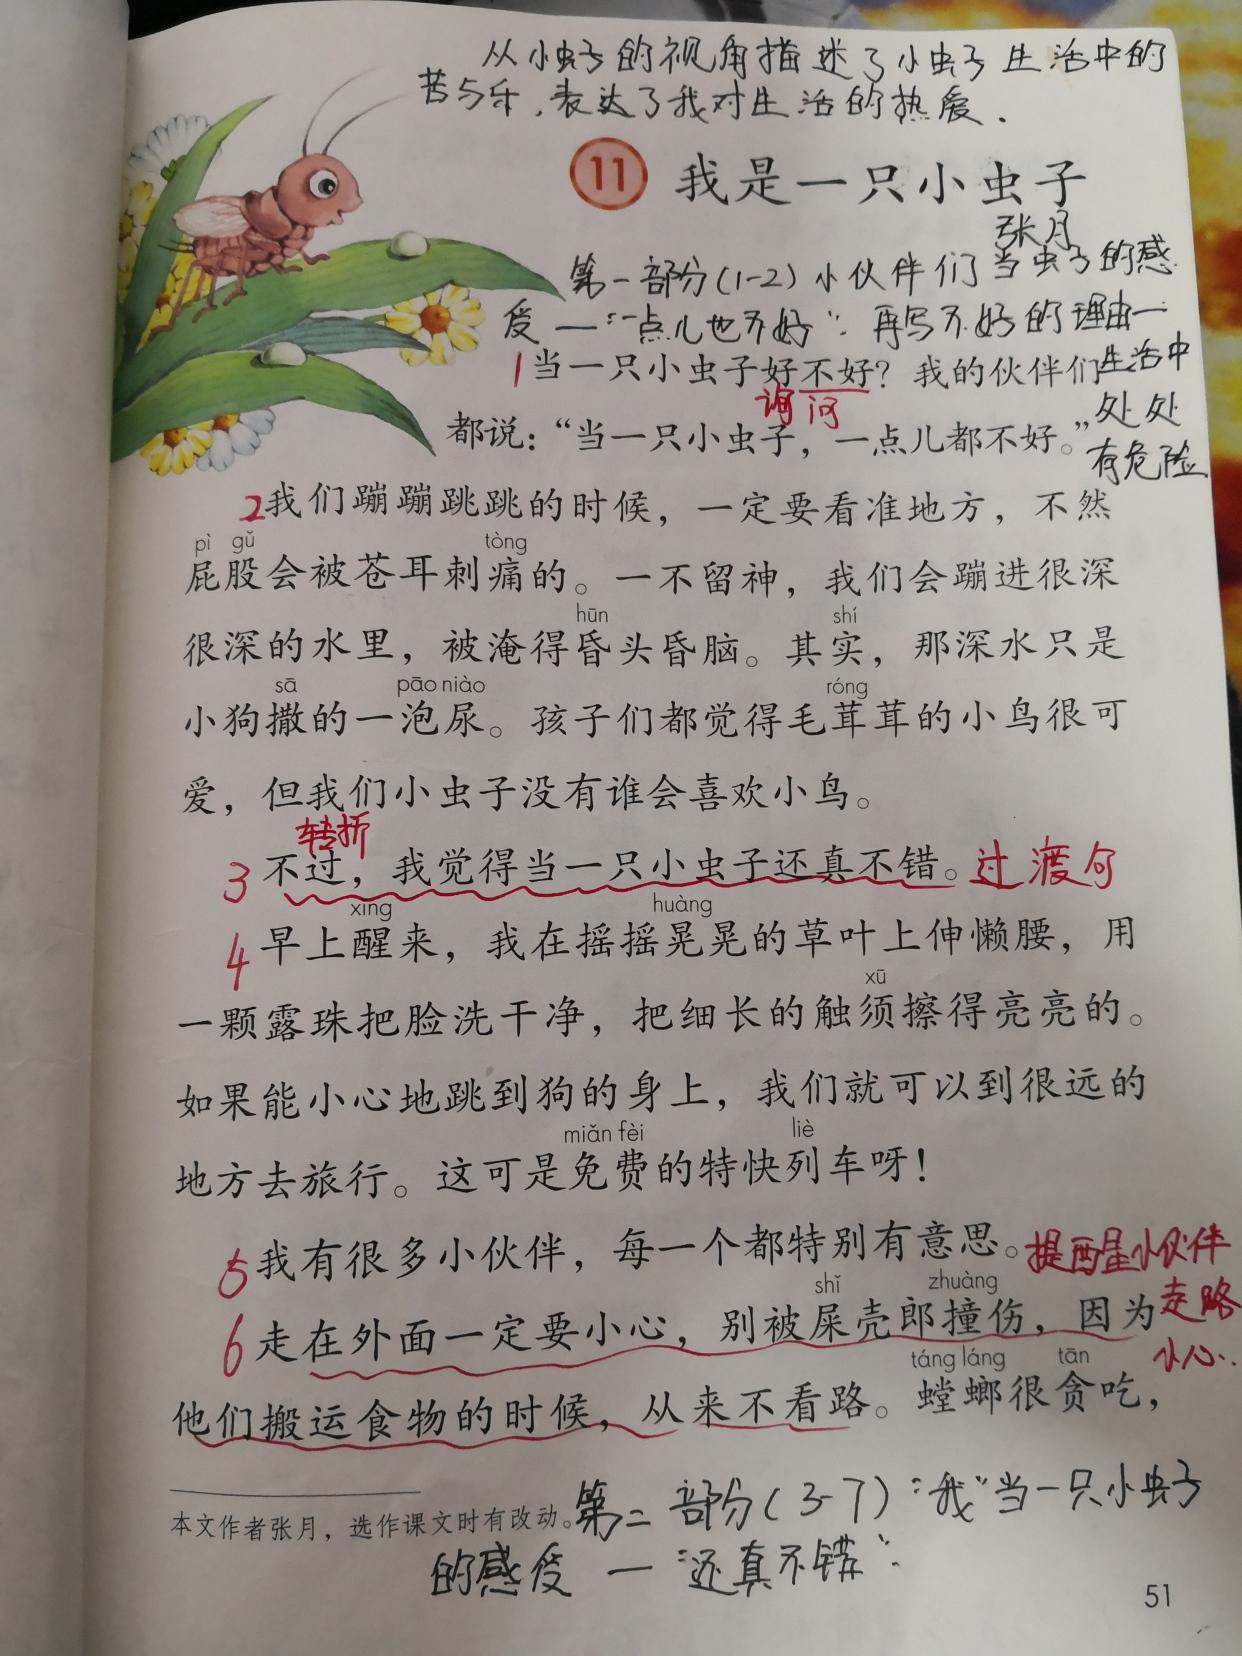 从小虫子的视角描述了小虫子生活中的
苦与乐,表达了我对生活的热爱.
11 我是一只小虫子
张月
第一部分(1-2)小伙伴们当虫子的感
受—“一点儿也不好”.再写不好的理由—
生活中
处处
有危险
1当一只小虫子好不好?我的伙伴们
询问
都说:“当一只小虫子,一点儿都不好。”
2我们蹦蹦跳跳的时候,一定要看准地方,不然
pì gǔ tòng
屁股会被苍耳刺痛的。一不留神,我们会蹦进很深
hūn shí
很深的水里,被淹得昏头昏脑。其实,那深水只是
sā pāo niào róng
小狗撒的一泡尿。孩子们都觉得毛茸茸的小鸟很可
爱,但我们小虫子没有谁会喜欢小鸟。
转折
3不过,我觉得当一只小虫子还真不错。过渡句
xǐng huàng
4早上醒来,我在摇摇晃晃的草叶上伸懒腰,用
xū
一颗露珠把脸洗干净,把细长的触须擦得亮亮的。
如果能小心地跳到狗的身上,我们就可以到很远的
miǎn fèi liè
地方去旅行。这可是免费的特快列车呀!
5我有很多小伙伴,每一个都特别有意思。提醒小伙伴
走路
小心.
shǐ zhuàng
6走在外面一定要小心,别被屎壳郎撞伤,因为
táng láng tān
他们搬运食物的时候,从来不看路。螳螂很贪吃,
本文作者张月,选作课文时有改动。
第二部分(3-7)“我”当一只小虫子
的感受—“还真不错”.
51